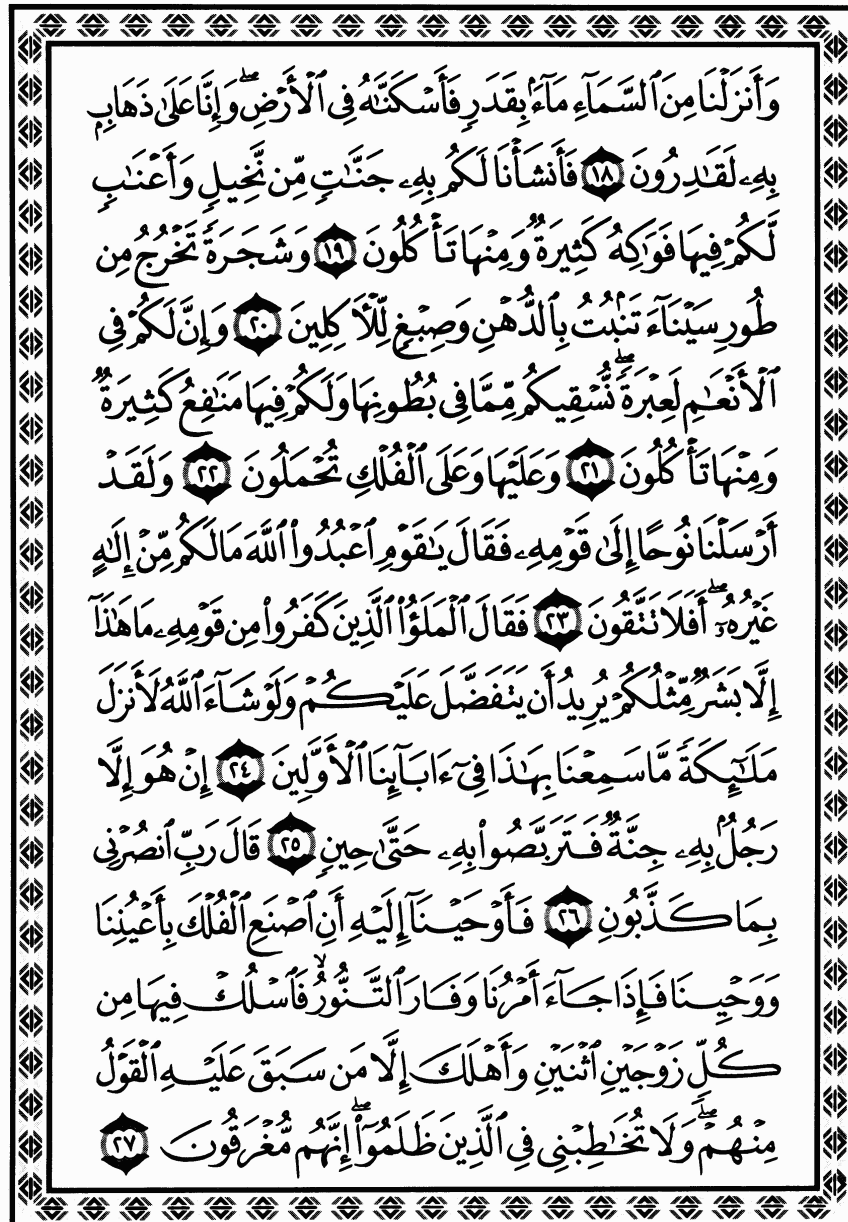 وَأَنزَلْنَا مِنَ ٱلسَّمَآءِ مَآءًۢ بِقَدَرٍ فَأَسْكَنَّٰهُ فِى ٱلْأَرْضِ ۖ وَإِنَّا عَلَىٰ ذَهَابٍۭ
بِهِۦ لَقَٰدِرُونَ ١٨ فَأَنشَأْنَا لَكُم بِهِۦ جَنَّٰتٍ مِّن نَّخِيلٍ وَأَعْنَٰبٍ
لَّكُمْ فِيهَا فَوَٰكِهُ كَثِيرَةٌ وَمِنْهَا تَأْكُلُونَ ١٩ وَشَجَرَةً تَخْرُجُ مِن
طُورِ سَيْنَآءَ تَنۢبُتُ بِٱلدُّهْنِ وَصِبْغٍ لِّلْأَكِلِينَ ٢٠ وَإِنَّ لَكُمْ فِى
ٱلْأَنْعَٰمِ لَعِبْرَةً ۖ نُّسْقِيكُم مِّمَّا فِى بُطُونِهَا وَلَكُمْ فِيهَا مَنَٰفِعُ كَثِيرَةٌ
وَمِنْهَا تَأْكُلُونَ ٢١ وَعَلَيْهَا وَعَلَى ٱلْفُلْكِ تُحْمَلُونَ ٢٢ وَلَقَدْ
أَرْسَلْنَا نُوحًا إِلَىٰ قَوْمِهِۦ فَقَالَ يَٰقَوْمِ ٱعْبُدُوا۟ ٱللَّهَ مَا لَكُم مِّنْ إِلَٰهٍ
غَيْرُهُۥٓ ۖ أَفَلَا تَتَّقُونَ ٢٣ فَقَالَ ٱلْمَلَؤُا۟ ٱلَّذِينَ كَفَرُوا۟ مِن قَوْمِهِۦ مَا هَٰذَآ
إِلَّا بَشَرٌ مِّثْلُكُمْ يُرِيدُ أَن يَتَفَضَّلَ عَلَيْكُمْ وَلَوْ شَآءَ ٱللَّهُ لَأَنزَلَ
مَلَٰٓئِكَةً مَّا سَمِعْنَا بِهَٰذَا فِىٓ ءَابَآئِنَا ٱلْأَوَّلِينَ ٢٤ إِنْ هُوَ إِلَّا
رَجُلٌۢ بِهِۦ جِنَّةٌ فَتَرَبَّصُوا۟ بِهِۦ حَتَّىٰ حِينٍ ٢٥ قَالَ رَبِّ ٱنصُرْنِى
بِمَا كَذَّبُونِ ٢٦ فَأَوْحَيْنَآ إِلَيْهِ أَنِ ٱصْنَعِ ٱلْفُلْكَ بِأَعْيُنِنَا
وَوَحْيِنَا فَإِذَا جَآءَ أَمْرُنَا وَفَارَ ٱلتَّنُّورُ ۙ فَٱسْلُكْ فِيهَا مِن
كُلٍّ زَوْجَيْنِ ٱثْنَيْنِ وَأَهْلَكَ إِلَّا مَن سَبَقَ عَلَيْهِ ٱلْقَوْلُ
مِنْهُمْ ۖ وَلَا تُخَٰطِبْنِى فِى ٱلَّذِينَ ظَلَمُوٓا۟ ۖ إِنَّهُم مُّغْرَقُونَ ٢٧